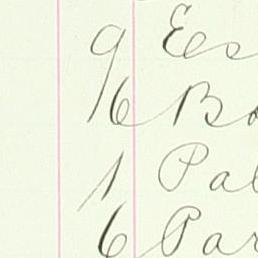 9 Ees
6 Bo
1 Pal
6 Par